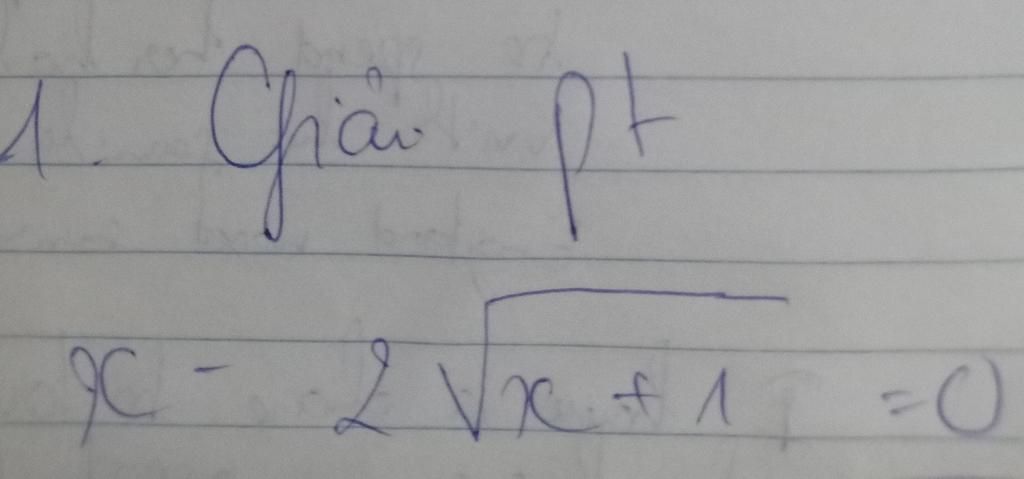 1. Giải pt
x - 2√(x + 1) = 0